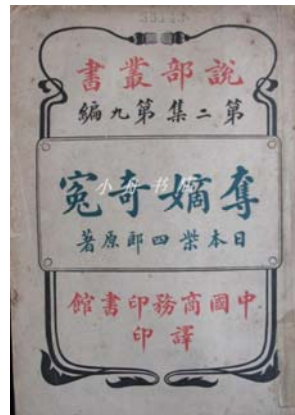 說部叢書
第二集第九編
奪嫡奇寃
日本柴四郎原著
中國商務印書館
譯印